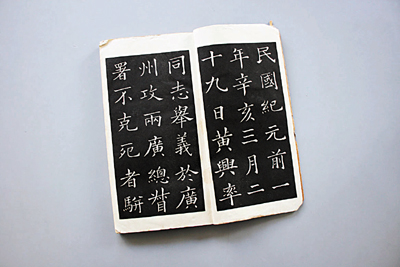 民國紀元前一
年辛亥三月二
十九日黃興率
同志舉義於廣
州攻兩廣總督
署不克死者駢